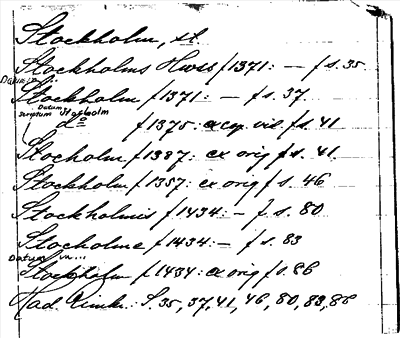 Stockholm, st.
Stockholms Hws f 1371: — f s. 35
Datum in..
Stockholm f 1371: — f s. 37.
Datum
scriptum Stocholm
do f 1375: ex cop. vid. f s. 41
Stocholm f 1387: ex orig f s. 41.
Stockholm f 1357: ex orig f s. 46
Stockholmis f 1434: — f. s. 80
Stocholme f 1434: — f s. 83
Datum in...
Stockholm f 1434: ex orig f s. 86
S. 35, 37, 41, 46, 80, 83, 86